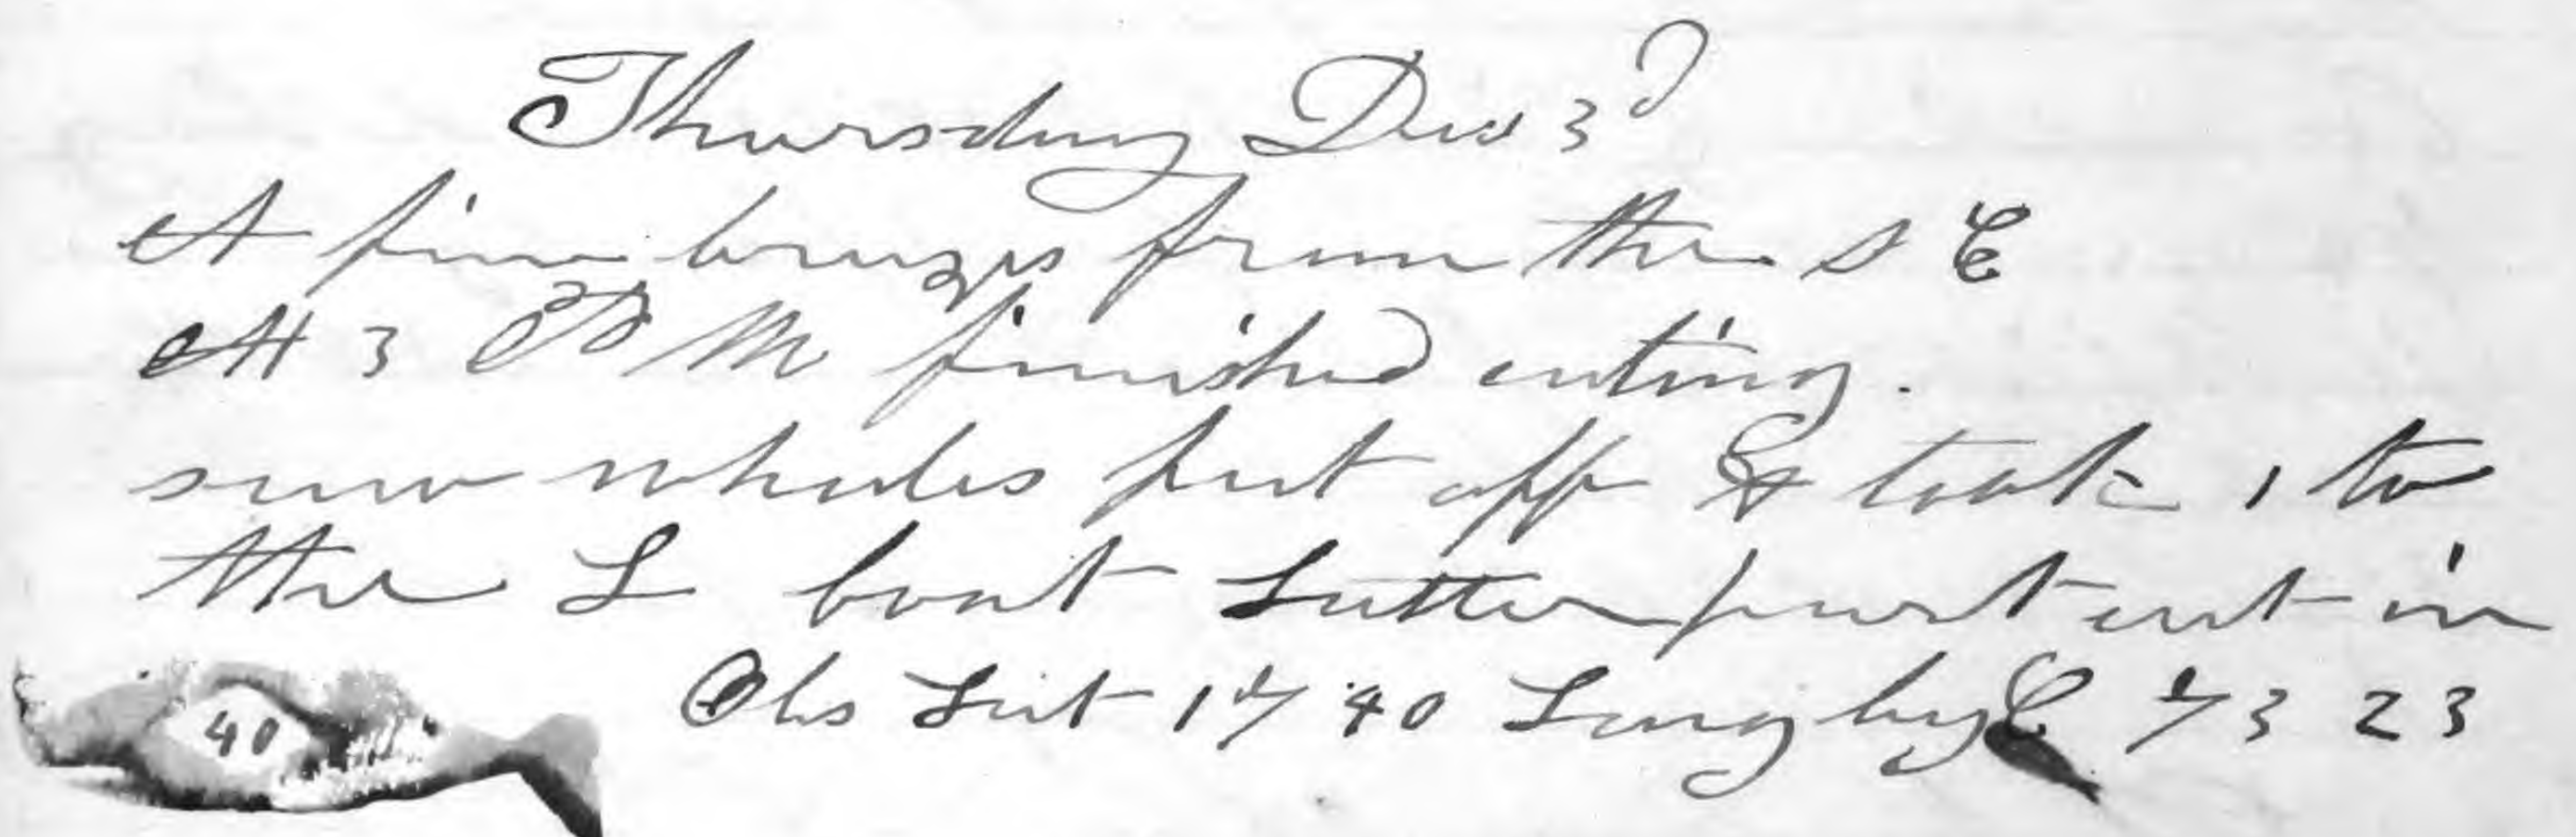 Thursday Dec 3d
A fine breeze from the S E
At 3 P M finished cuting.
saw whales put off & took 1 to
the L boat Latter part cut in
40
Obs Lat 17 40 Long by C 73 23